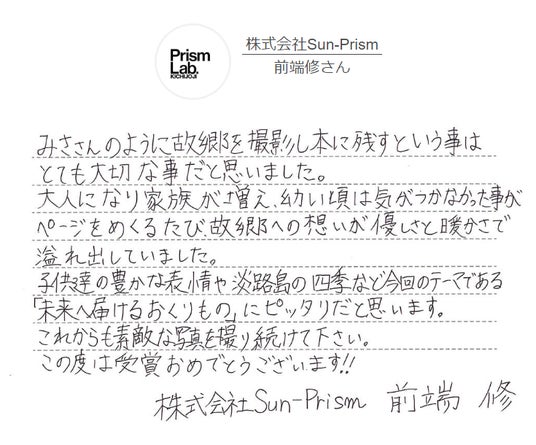 Prism
Lab.
KICHIJOJI
株式会社Sun-Prism
前端修さん
みささんのように故郷を撮影し本に残すという事は
とても大切な事だと思いました。
大人になり家族が増え、幼い頃は気がつかなかった事が
ページをめくるたび、故郷への想いが優しさと暖かさで
溢れ出していました。
子供達の豊かな表情や淡路島の四季など今回のテーマである
「未来へ届けるおくりもの」にピッタリだと思います。
これからも素敵な写真を撮り続けて下さい。
この度は受賞おめでとうございます!!
株式会社Sun-Prism 前端 修